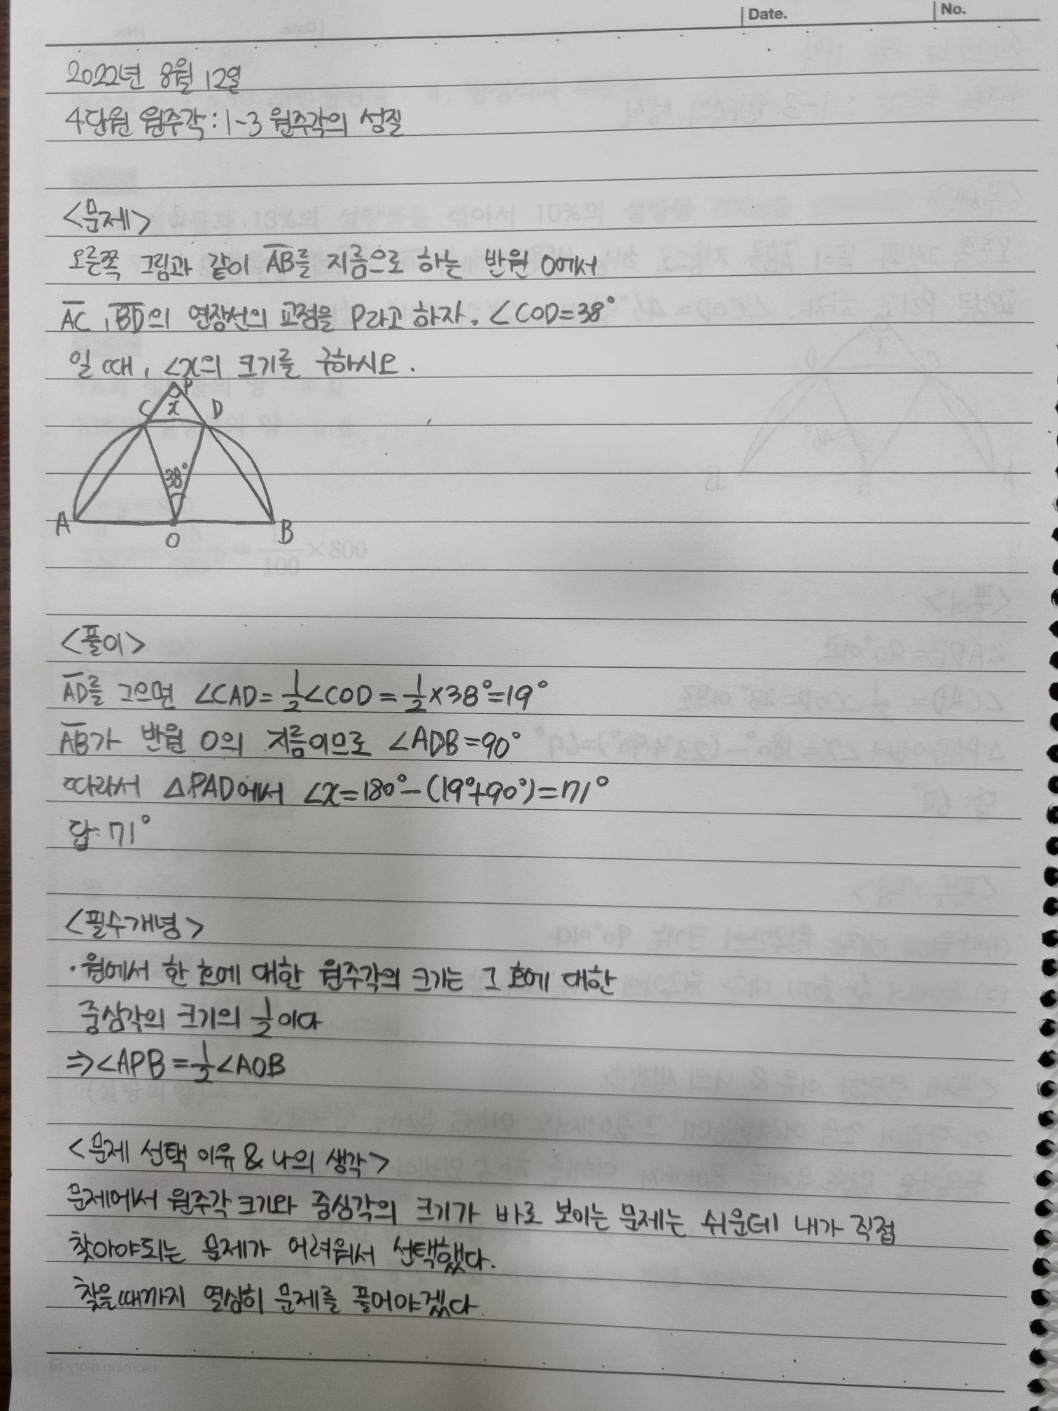 Date.
No.
2022년 8월 12일
4단원 원주각 : 1-3 원주각의 성질
<문제>
오른쪽 그림과 같이 AB를 지름으로 하는 반원 O에서
AC, BD의 연장선의 교점을 P라고 하자. ∠COD=38°
일 때, ∠x의 크기를 구하시오.
P
C x D
38°
A O B
<풀이>
AD를 그으면 ∠CAD=1/2∠COD=1/2×38°=19°
AB가 반원 O의 지름이므로 ∠ADB=90°
따라서 △PAD에서 ∠x=180°-(19°+90°)=71°
답: 71°
<필수개념>
·원에서 한 호에 대한 원주각의 크기는 그 호에 대한
중심각의 크기의 1/2이다
⇒∠APB=1/2∠AOB
<문제 선택 이유 & 나의 생각>
문제에서 원주각 크기와 중심각의 크기가 바로 보이는 문제는 쉬운데 내가 직접
찾아야되는 문제가 어려워서 선택했다.
찾을때까지 열심히 문제를 풀어야겠다.